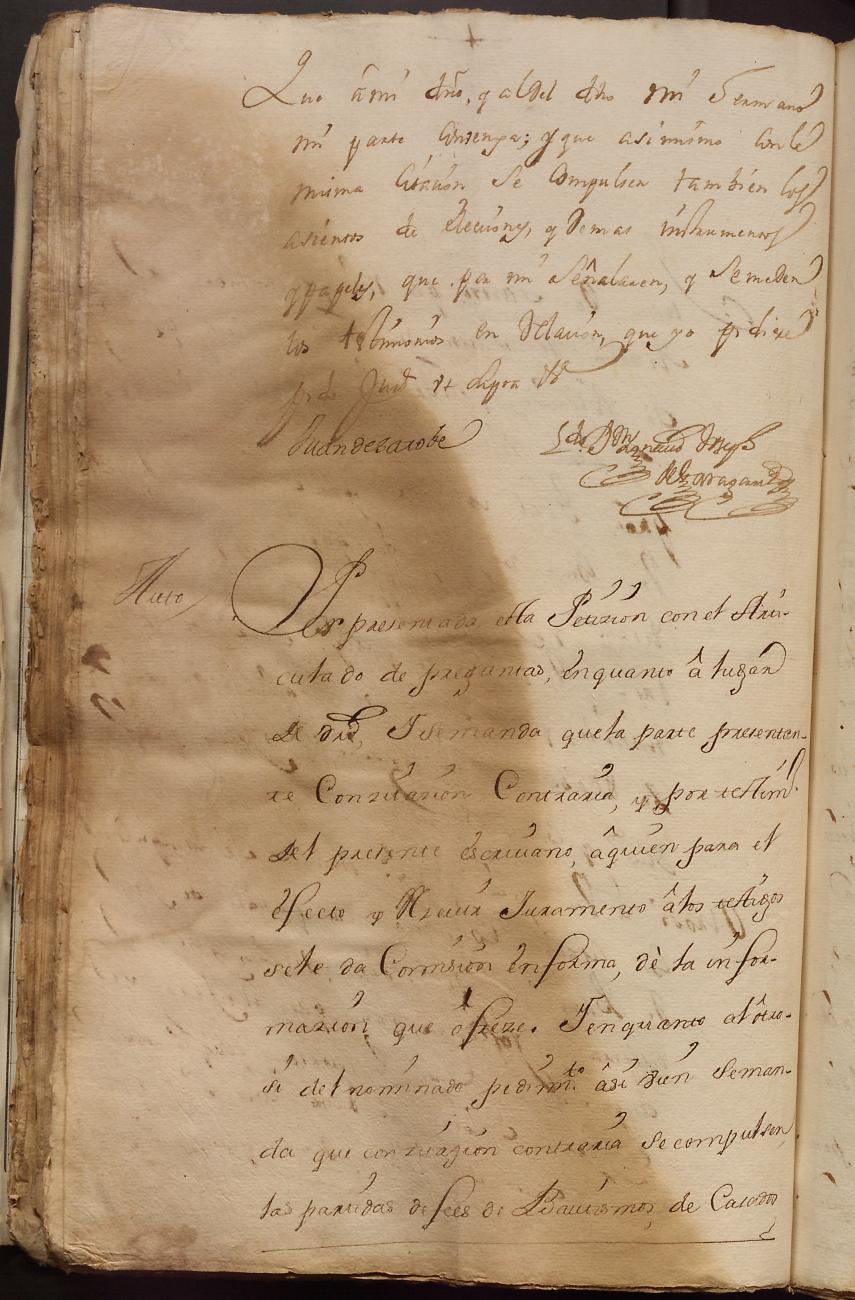 Que â mi dro, y al del dho mi Hermano
mi parte Convenga; y que asimismo con la
misma Citación Se Compulsen también los
asientos de Elecciones, y Demas instrumentos
y papeles, que por mi Señalaren, y Se me den
los testimonios en Relacion, que yo pidiere
pido Just.
Juan de Escorbe
Ldo. Dn
de Baragan
Auto
Por presentada esta Petizion con el Arti-
culado de preguntas, en quanto â lugar
de dro, I se manda que la parte presentan-
te Con zitazion Contraria, y por testim.
del presente escriuano, â quien para el
efecto y Rzeuir Juramento â los testigos
se le da Comision en forma, dè la infor-
mazion que ofreze. I en quanto al otro-
si del nominado pedimto. âsi bien Seman-
da que con zitazion contraria se compulsen
las partidas de fees de Bautismos, de Casados